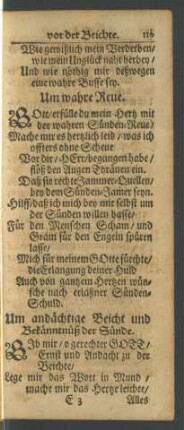 vor der Beichte.
Wie gewißlich mein Verderben/
wie mein Unglück nahe herbey/
Und wie nöthig mir deßwegen
eine wahre Busse sey.
Um wahre Reue.
GOtt/ erfülle du mein Hertz mit
der wahren Sünden-Reue/
Mache mir es hertzlich leid/ was ich
offters ohne Scheue
Vor dir/ HErr/ begangen habe/
flöß den Augen Thränen ein.
Daß sie rechte Jammer-Quellen/
bey dem Sünden-Jamer seyn.
Hilff/ daß ich mich bey mir selbst um
der Sünden willen hasse/
Für den Menschen Scham/ und
Gram für den Engeln spüren
lasse/
Mich für meinem GOtte fürchte/
die Erlangung deiner Huld
Auch von gantzem Hertzen wün-
sche nach erlaßner Sünden-
Schuld.
Um andächtige Beicht und
Bekänntnüß der Sünde.
GIb mir/ o gerechter GOTT/
Ernst und Andacht zu der
Beichte/
Lege mir das Wort in Mund/
macht mir das Hertze leichte/
E 3 Alles